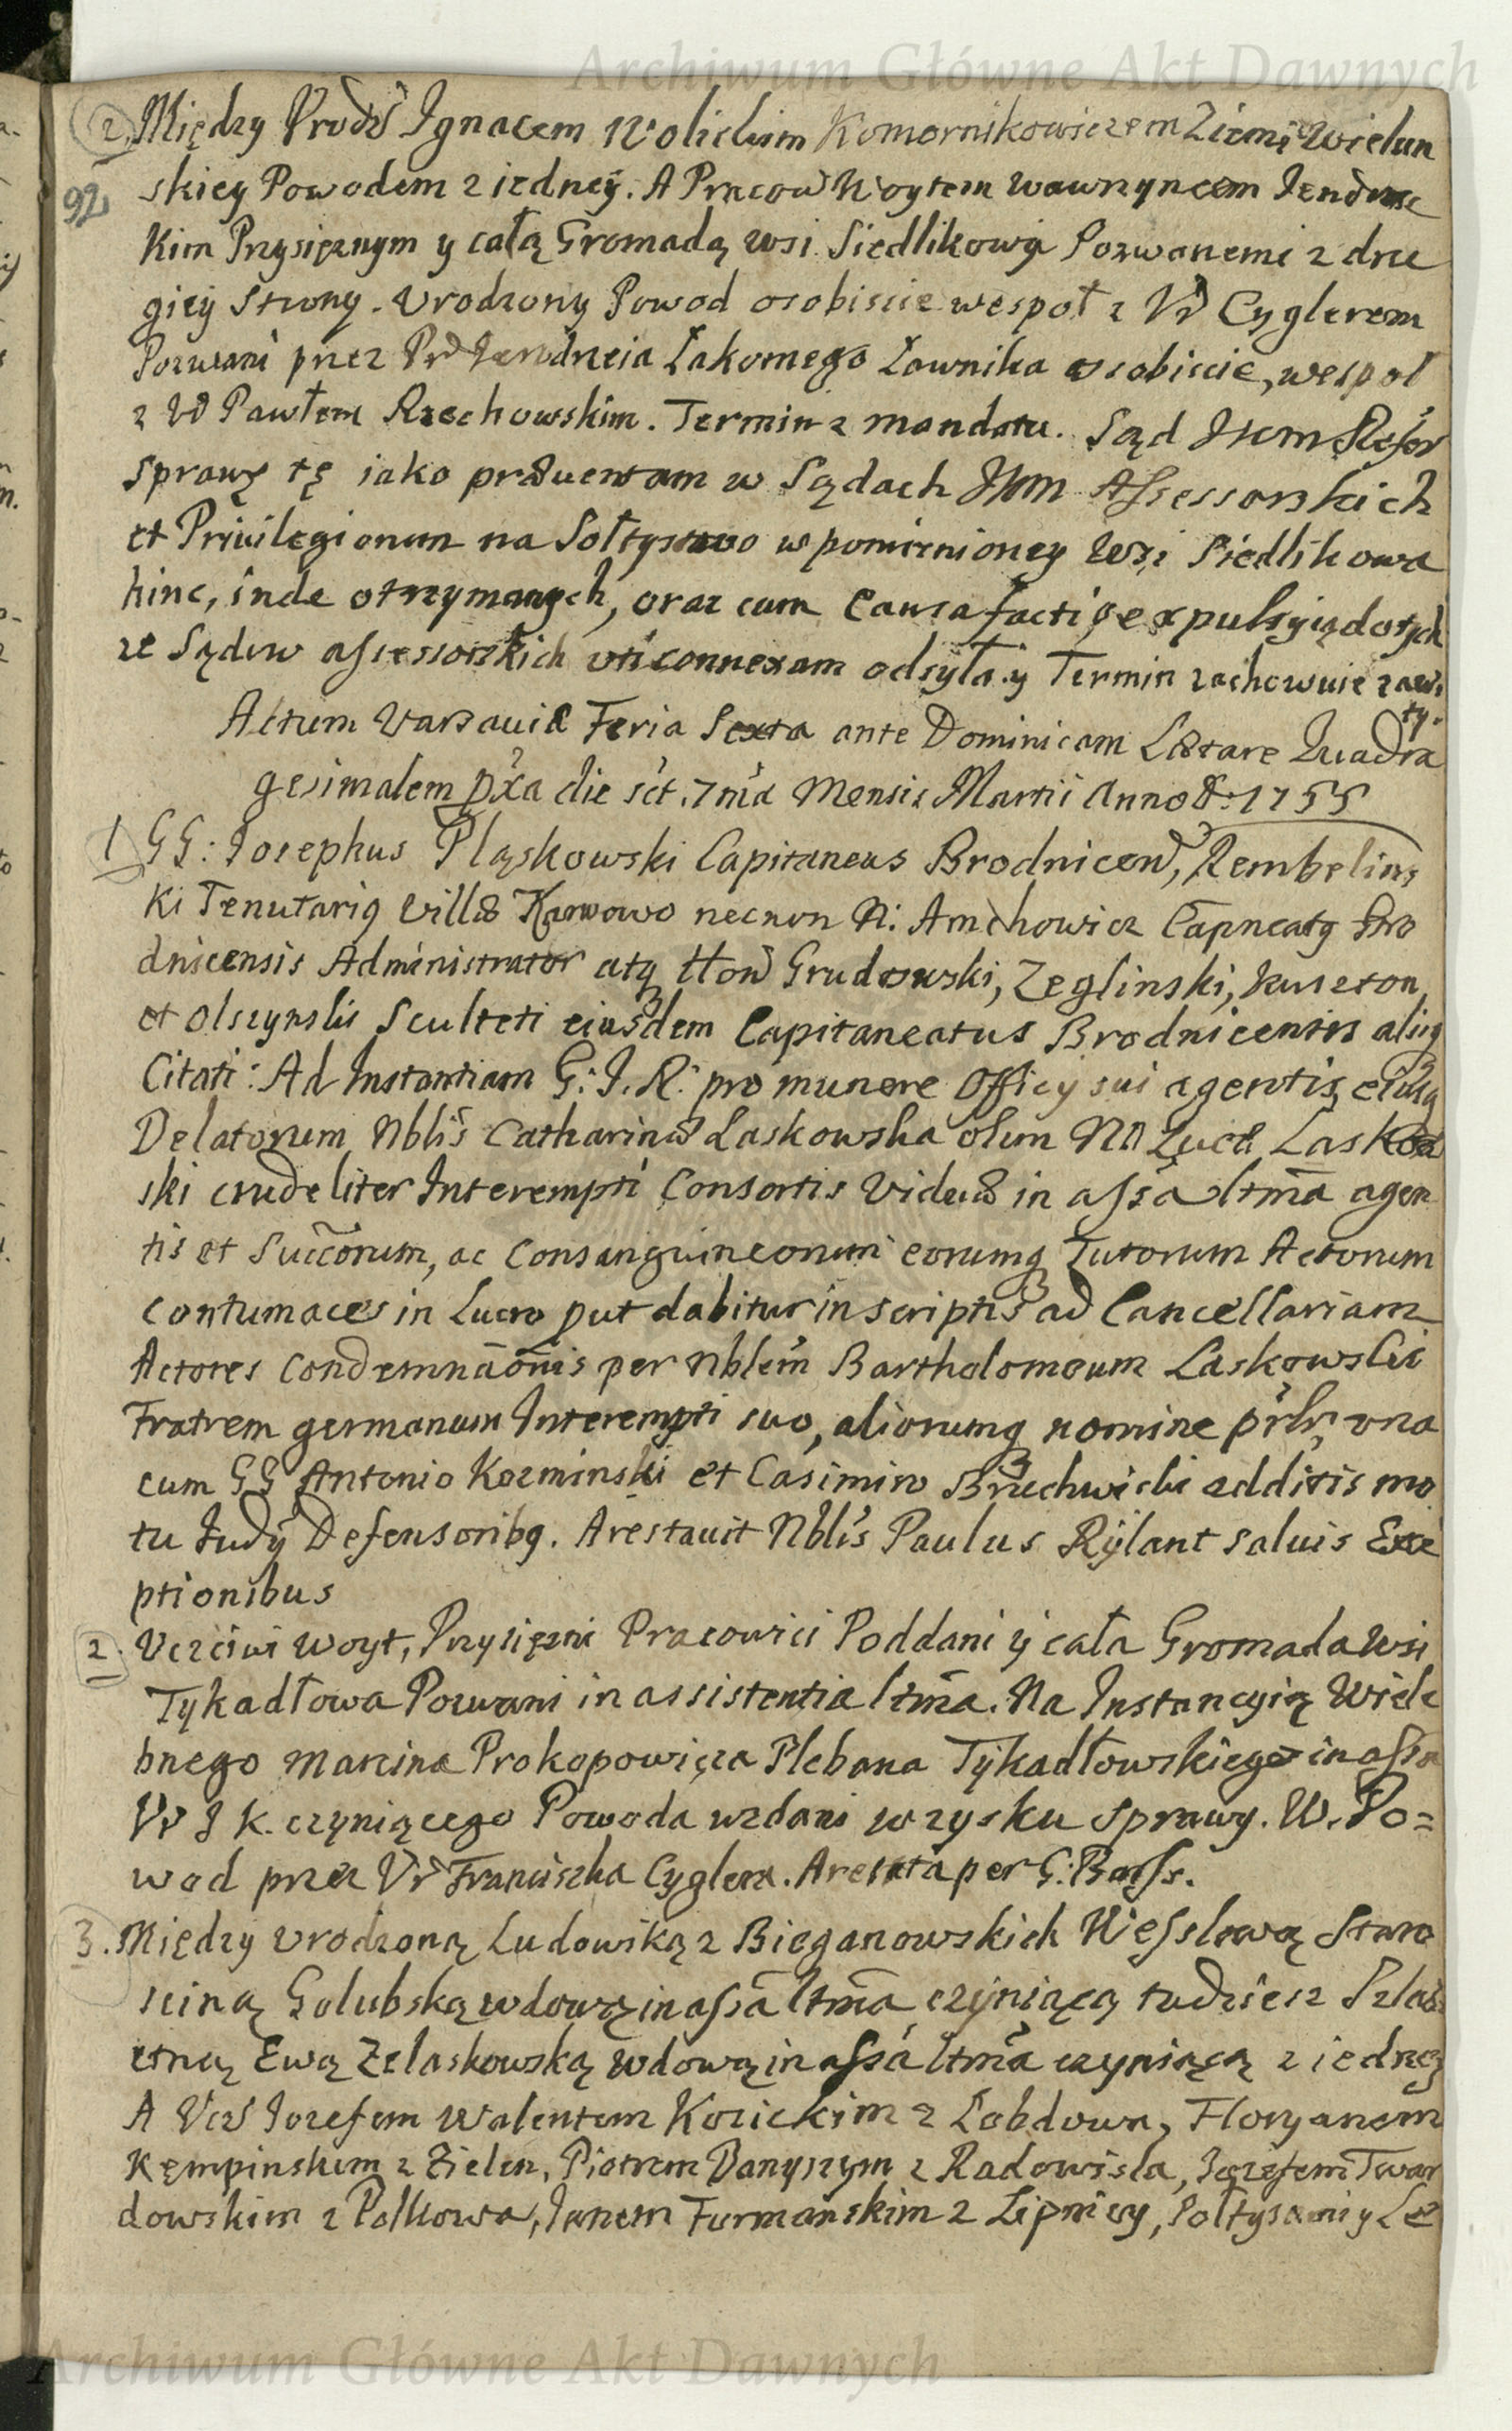 Archiwum Główne Akt Dawnych
2. Między Urodź Ignacem Wolickim Komornikowiczem Ziemi Wielun
92 skiey Powodem z iedney. A Pracow Woytem Wawrzyncem
kim Przysięznym y całą Gromadą wsi Siedlikowa Pozwanemi z dru
giey Strony. Urodzony Powod osobiscie wespoł z Ur Cyglerem
Pozwani przez Łakomego Ławnika osobiscie, wespoł
z Ur Pawłem Rzechowskim. Termin z mandatu. Sąd Jkm Refer
sprawę tę iako præuentam w Sądach Jkm Assessorskich
et Privilegiorum na Sołtystwo w pomienioney Wsi Siedlikowa
hinc, inde otrzymanych, oraz cum Causa facti o expulsyią dotych
ze Sądow assessorskich uti connexam odsyła y Termin zachowuie zawi
ty.
Actum Varsaviæ Feria Sexta ante Dominicam Lætare Quadra
gesimalem pxa die sct. 7ma Mensis Martii Anno D: 1755
1 GG: Josephus Pląskowski Capitaneus Brodnicen, Rembelins
ki Tenutariq villæ Karwowo necnon N: Amchowicz Capneatq Bro
dnicensis Administrator atq Hon Grudowski, Zeglinski, Kuszton
et Olszynski Sculteti eiusdem Capitaneatus Brodnicensis aliiq
Citati: Ad Instantiam G: I. R: pro munere Officy sui agentis, eiusq
Delatorum Nblis Catharinæ Laskowska olim NO Lucæ Laskow
ski crudeliter Interempti Consortis Viduæ in assa ltma agen
tis et Succorum, ac Consanguineorum eorumq Tutorum Actorum
contumaces in Lucro put dabitur in scriptis ad Cancellariam
Actores Condemnaonis per Nblem Bartholomeum Laskowski
Fratrem germanum Interempti suo, aliorumq nomine prtr una
cum GG Antonio Kozminski et Casimiro Bruchwicki additis mo
tu Judy Defensoribq. Arestauit Nblis Paulus Rÿlant salvis Exce
ptionibus
2. Uczciwi Woyt, Przysięzni Pracowici Poddani ÿ cała Gromada Wsi
Tykadłowa Pozwani in assistentia ltma. Na Instancyią Wiele
bnego Marcina Prokopowicza Plebana Tÿkadłowskiego in assa
Ur I K. czyniącego Powoda wzdani w zysku sprawy. W. Po=
wod przez Ur Franciszka Cyglera. Arestata per G: Barss.
3. Między Urodzoną Ludowiką z Bieganowskich Wesslową Staro
sciną Golubską wdową in assa ltma czÿniącą tudziesz Szlach
etną Ewą Zelaskowską wdową in assa ltma czyniącą z iedney
A Ucz Jozefem Walentem Kozickim z Łobdowa, Floryanem
Kępinskim z Zielen, Piotrem Danyszym z Radowisla, Jozefem Twar
dowskim z Polkowa, Janem Furmanskim z Lipnicy, Sołtysami y Le
Archiwum Główne Akt Dawnych